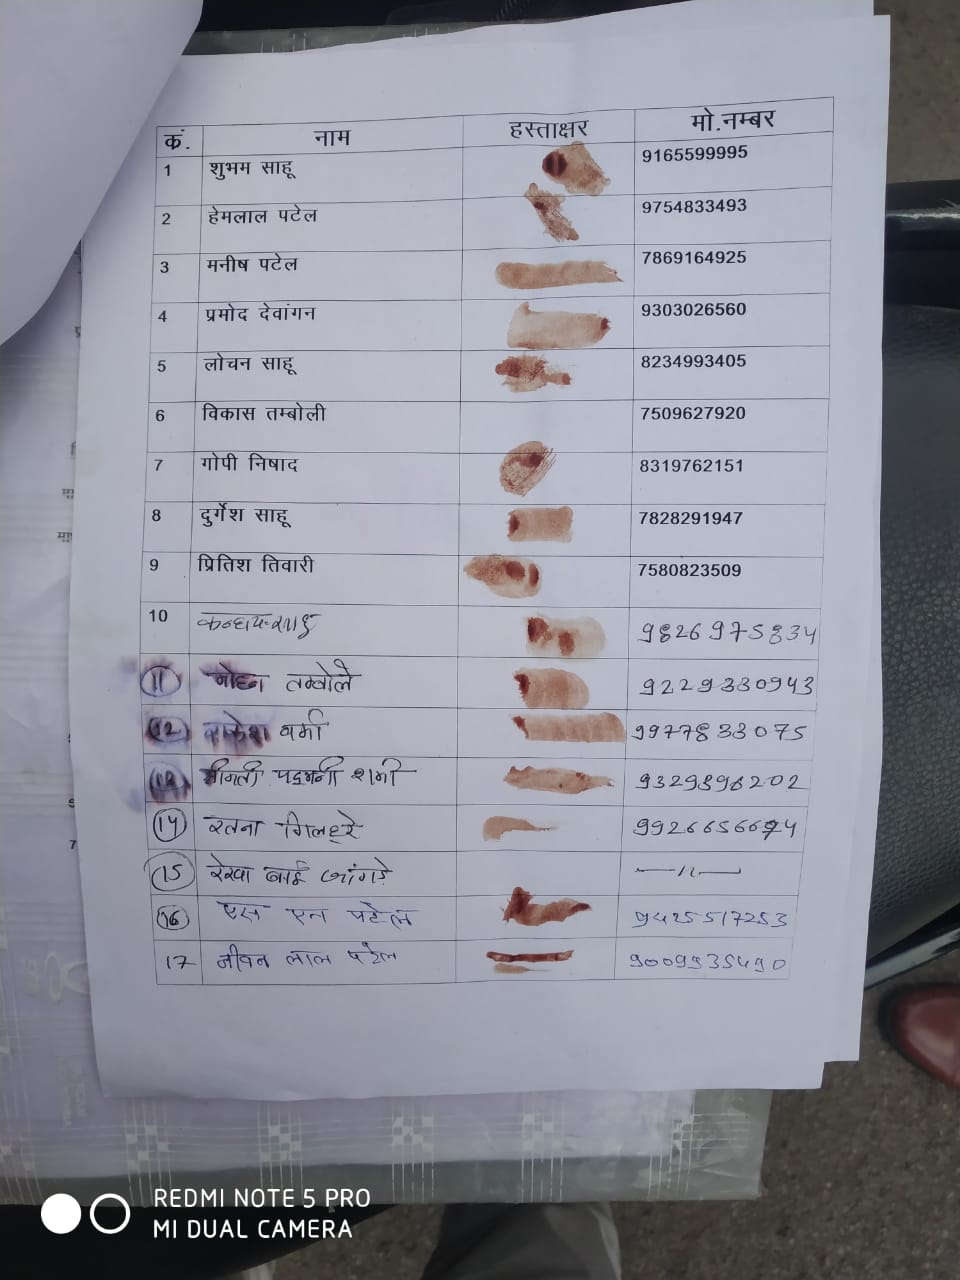 कं. नाम हस्ताक्षर मो.नम्बर
1 शुभम साहू 9165599995
2 हेमलाल पटेल 9754833493
3 मनीष पटेल 7869164925
4 प्रमोद देवांगन 9303026560
5 लोचन साहू 8234993405
6 विकास तम्बोली 7509627920
7 गोपी निषाद 8319762151
8 दुर्गेश साहू 7828291947
9 प्रितिश तिवारी 7580823509
10 9826975834
11 तम्बोले 9229330943
12 राकेश वर्मा 9977833075
शर्मा 9329896202
14 रतना गिलहरे
15 रेखा बाई जांगडे —11—
16 एस एन पटेल 9425517253
17 जीवन लाल पटेल 9009935490
7
REDMI NOTE 5 PRO
MI DUAL CAMERA